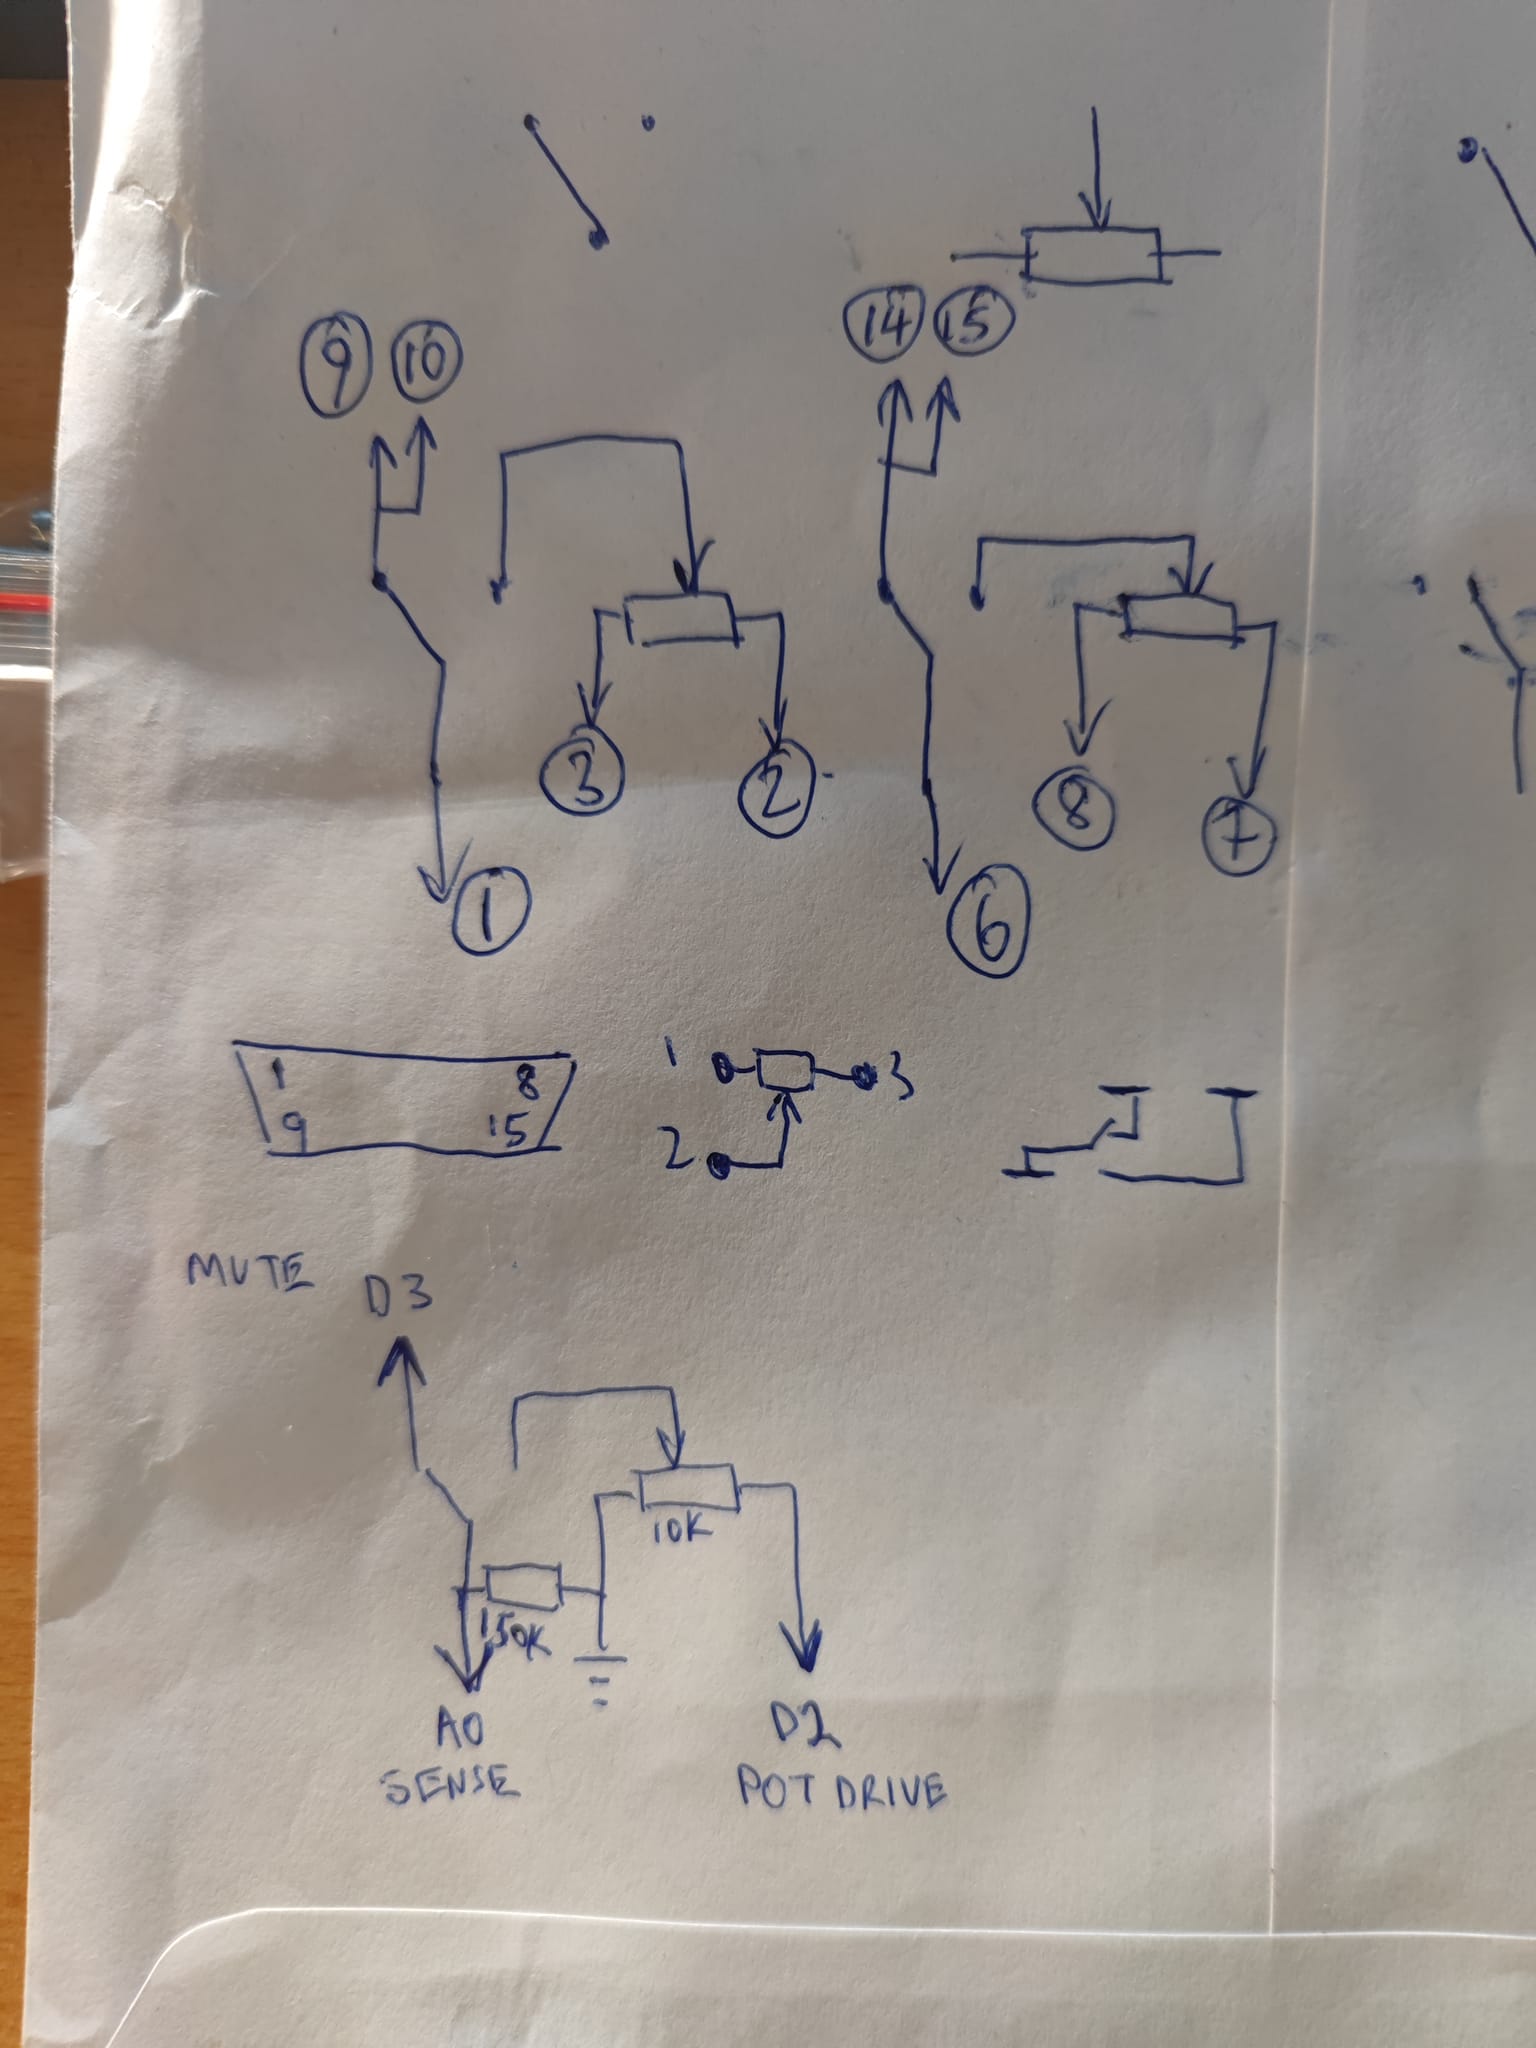 14 15
9 10
3 2
8 7
1 6
1 8
9 15
1 3
2
MUTE
D3
10K
150K
A0 D2
SENSE POT DRIVE